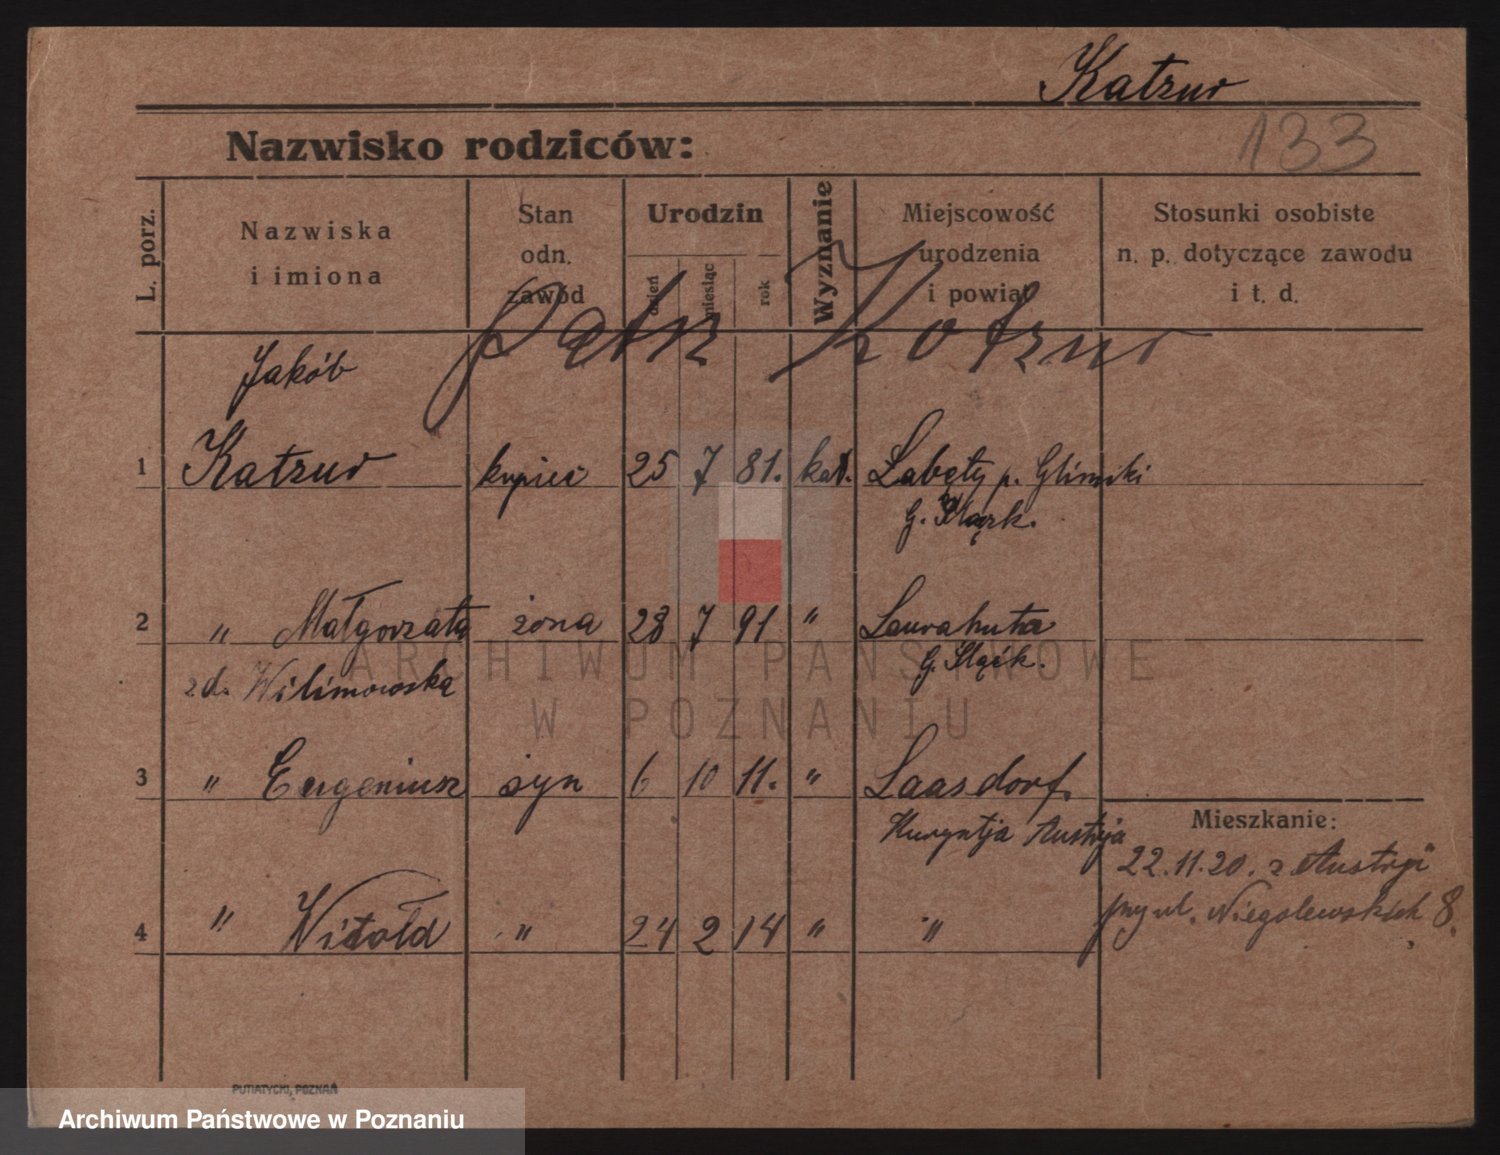 Katzur
Nazwisko rodziców:
133
L. porz.
Nazwiska
i imiona
Stan
odn.
zawód
Urodzin
dzień
miesiąc
rok
Wyznanie
Miejscowość
urodzenia
i powiat
Stosunki osobiste
n. p. dotyczące zawodu
i t. d.
Patrz Kotzur
Jakób
1 Katzur kupiec 25 7 81. kat. Łabęty p. Gliwicki
G. Śląsk.
2 " Małgorzata żona 28 7 91 " Laurahuta
zd. Wilimowska G. Śląsk.
3 " Eugeniusz syn 6 10 11. " Laasdorf
Austrja
Mieszkanie:
22.11.20. z Austrji
przy ul. Niegolewskich 8.
4 " Witold " 24 2 14 " "
ARCHIWUM PAŃSTWOWE
W POZNANIU
PUTIATYCKI, POZNAŃ
Archiwum Państwowe w Poznaniu